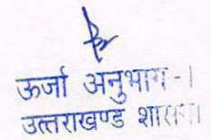 ऊर्जा अनुभाग-1
उत्तराखण्ड शासन।